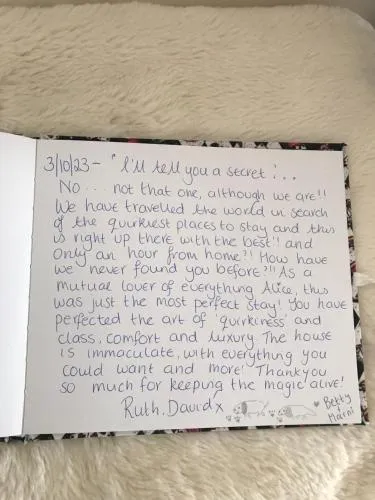 3/10/23 - "I'll tell you a secret"...
No... not that one, although we are!!
We have travelled the world in search
of the quirkiest places to stay and this
is right up there with the best!! and
Only an hour from home?! How have
we never found you before?!! As a
mutual lover of everything Alice, this
was just the most perfect stay! You have
perfected the art of 'quirkiness' and
class, comfort and luxury. The house
is immaculate, with everything you
could want and more! Thankyou
so much for keeping the magic alive!
Ruth, David x
Betty
& Marni